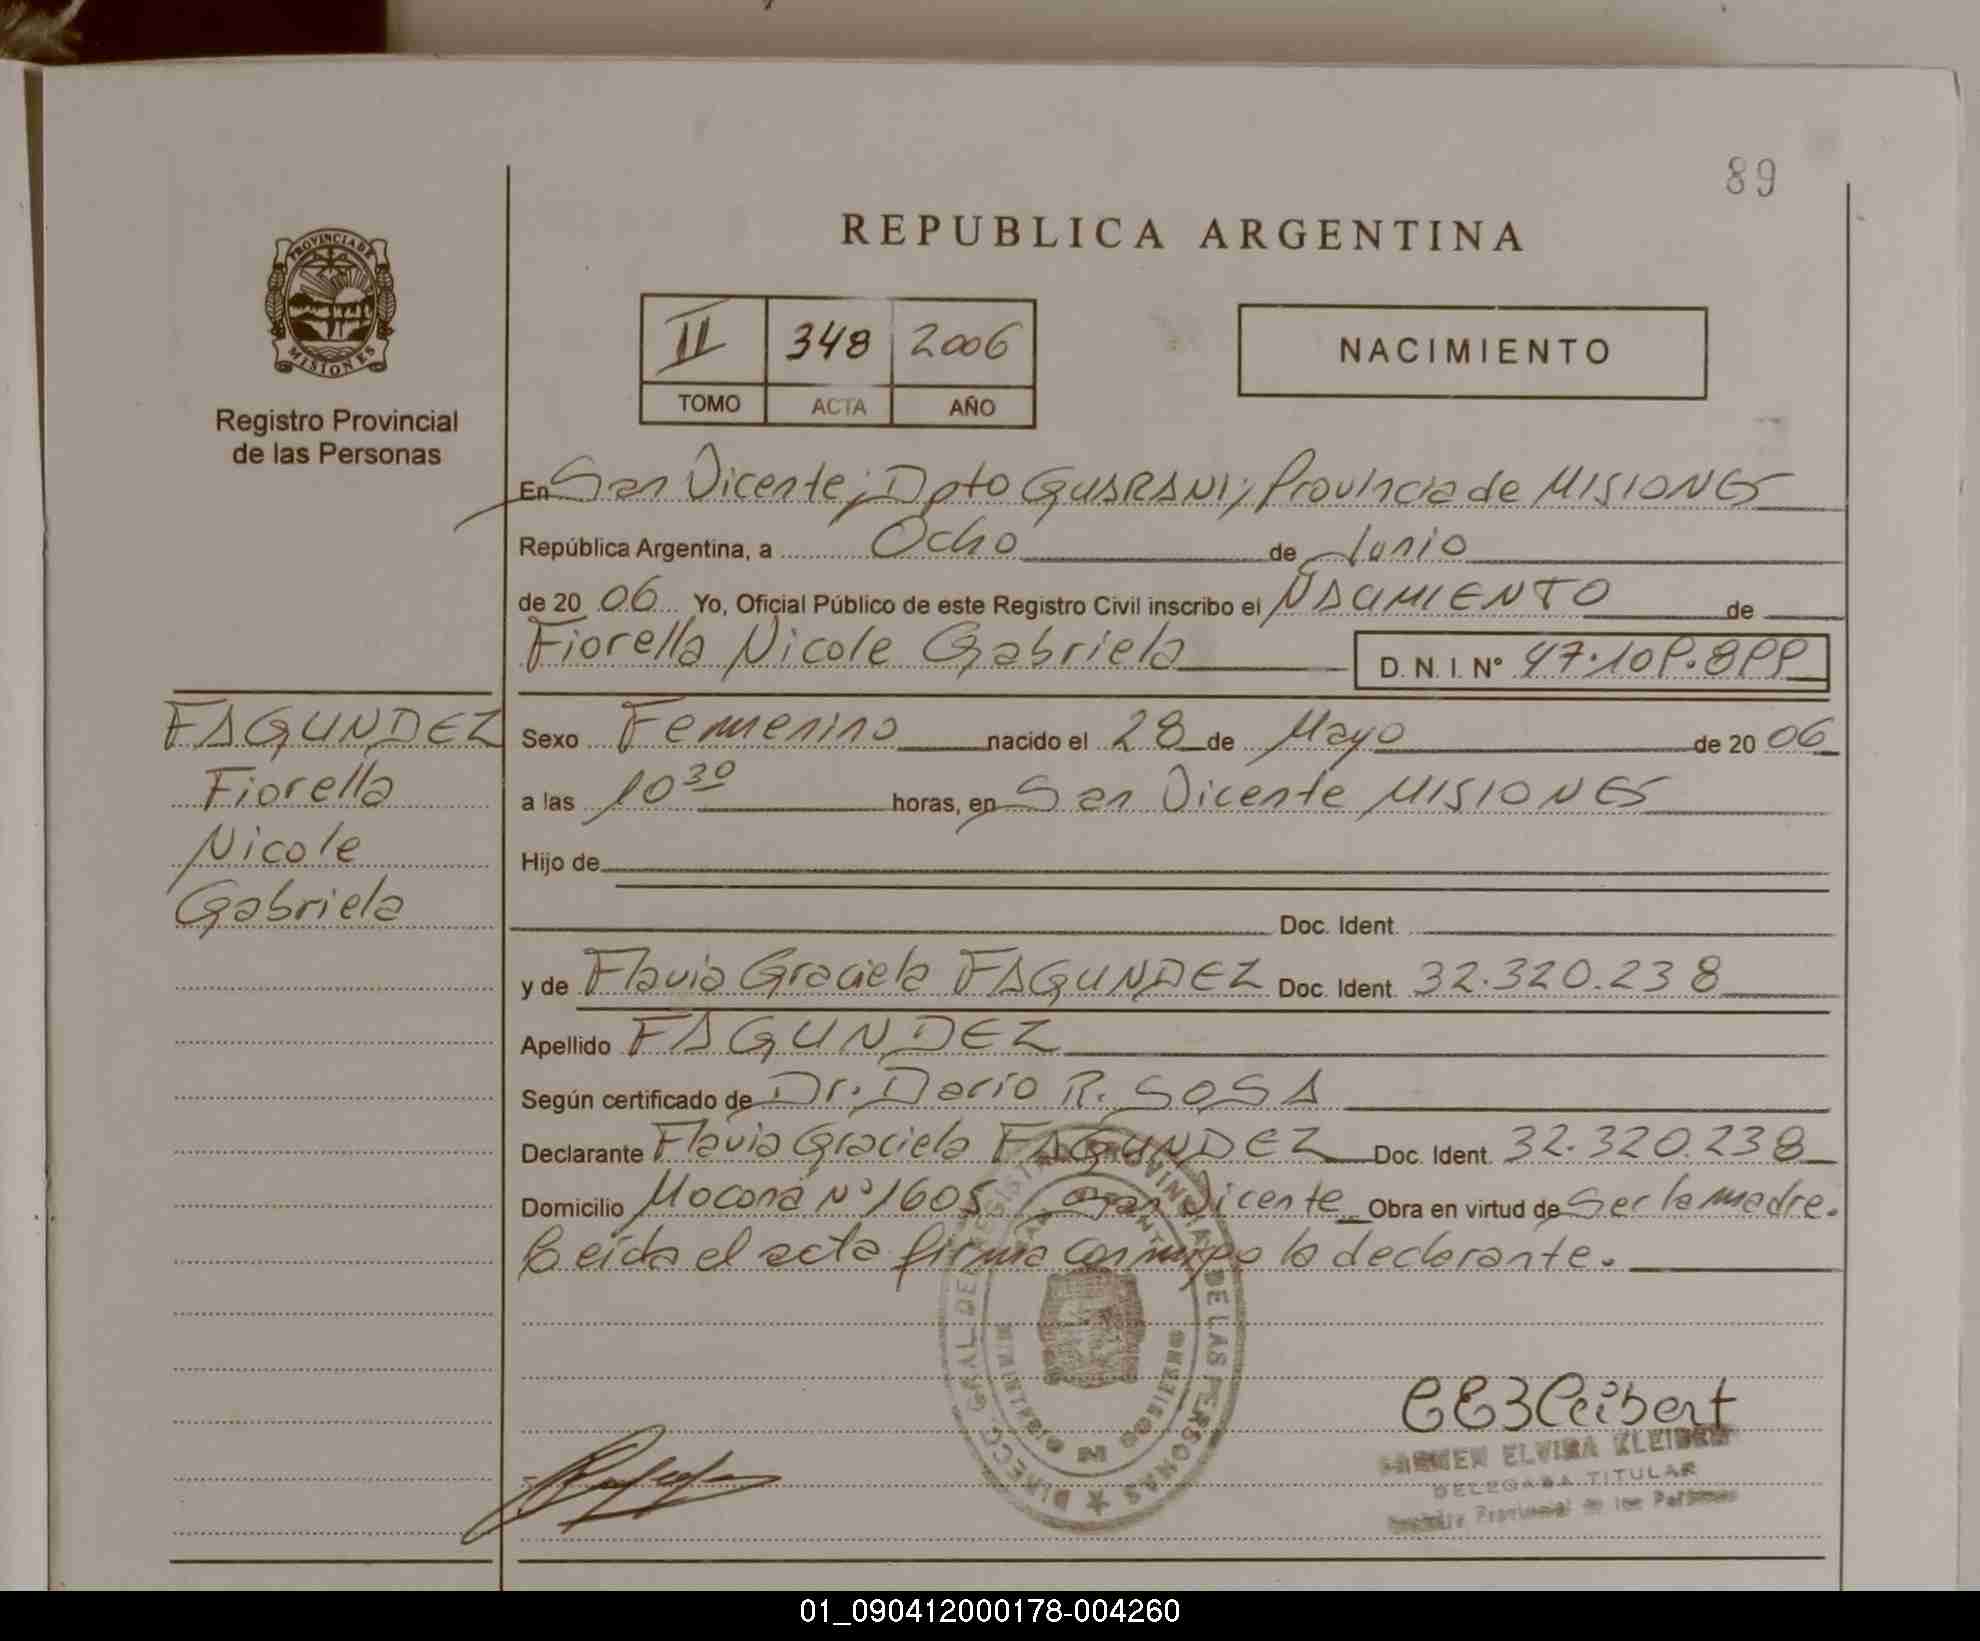 89
REPUBLICA ARGENTINA
PROVINCIA DE
MISIONES
Registro Provincial
de las Personas
II 348 2006
TOMO ACTA AÑO
NACIMIENTO
En San Vicente; Dpto GUARANI; Provincia de MISIONES
República Argentina, a Ocho de Junio
de 20 06 Yo, Oficial Público de este Registro Civil inscribo el NACIMIENTO de
Fiorella Nicole Gabriela D. N. I. N° 47.109.899
FAGUNDEZ
Fiorella
Nicole
Gabriela
Sexo Femenino nacido el 28 de Mayo de 20 06
a las 10 30 horas, en San Vicente MISIONES
Hijo de
Doc. Ident.
y de Flavia Graciela FAGUNDEZ Doc. Ident. 32.320.238
Apellido FAGUNDEZ
Según certificado de Dr. Dario R. SOSA
Declarante Flavia Graciela FAGUNDEZ Doc. Ident. 32.320.238
Domicilio Mocona N° 1605 San Vicente Obra en virtud de Ser la madre.
Leida el acta firma conmigo la declarante.
DIRECC. GRAL. DEL REGISTRO PROVINCIAL DE LAS PERSONAS
MINISTERIO DE GOBIERNO
CARMEN ELVIRA KLEIBERT
DELEGADA TITULAR
Registro Provincial de las Personas
01_090412000178-004260